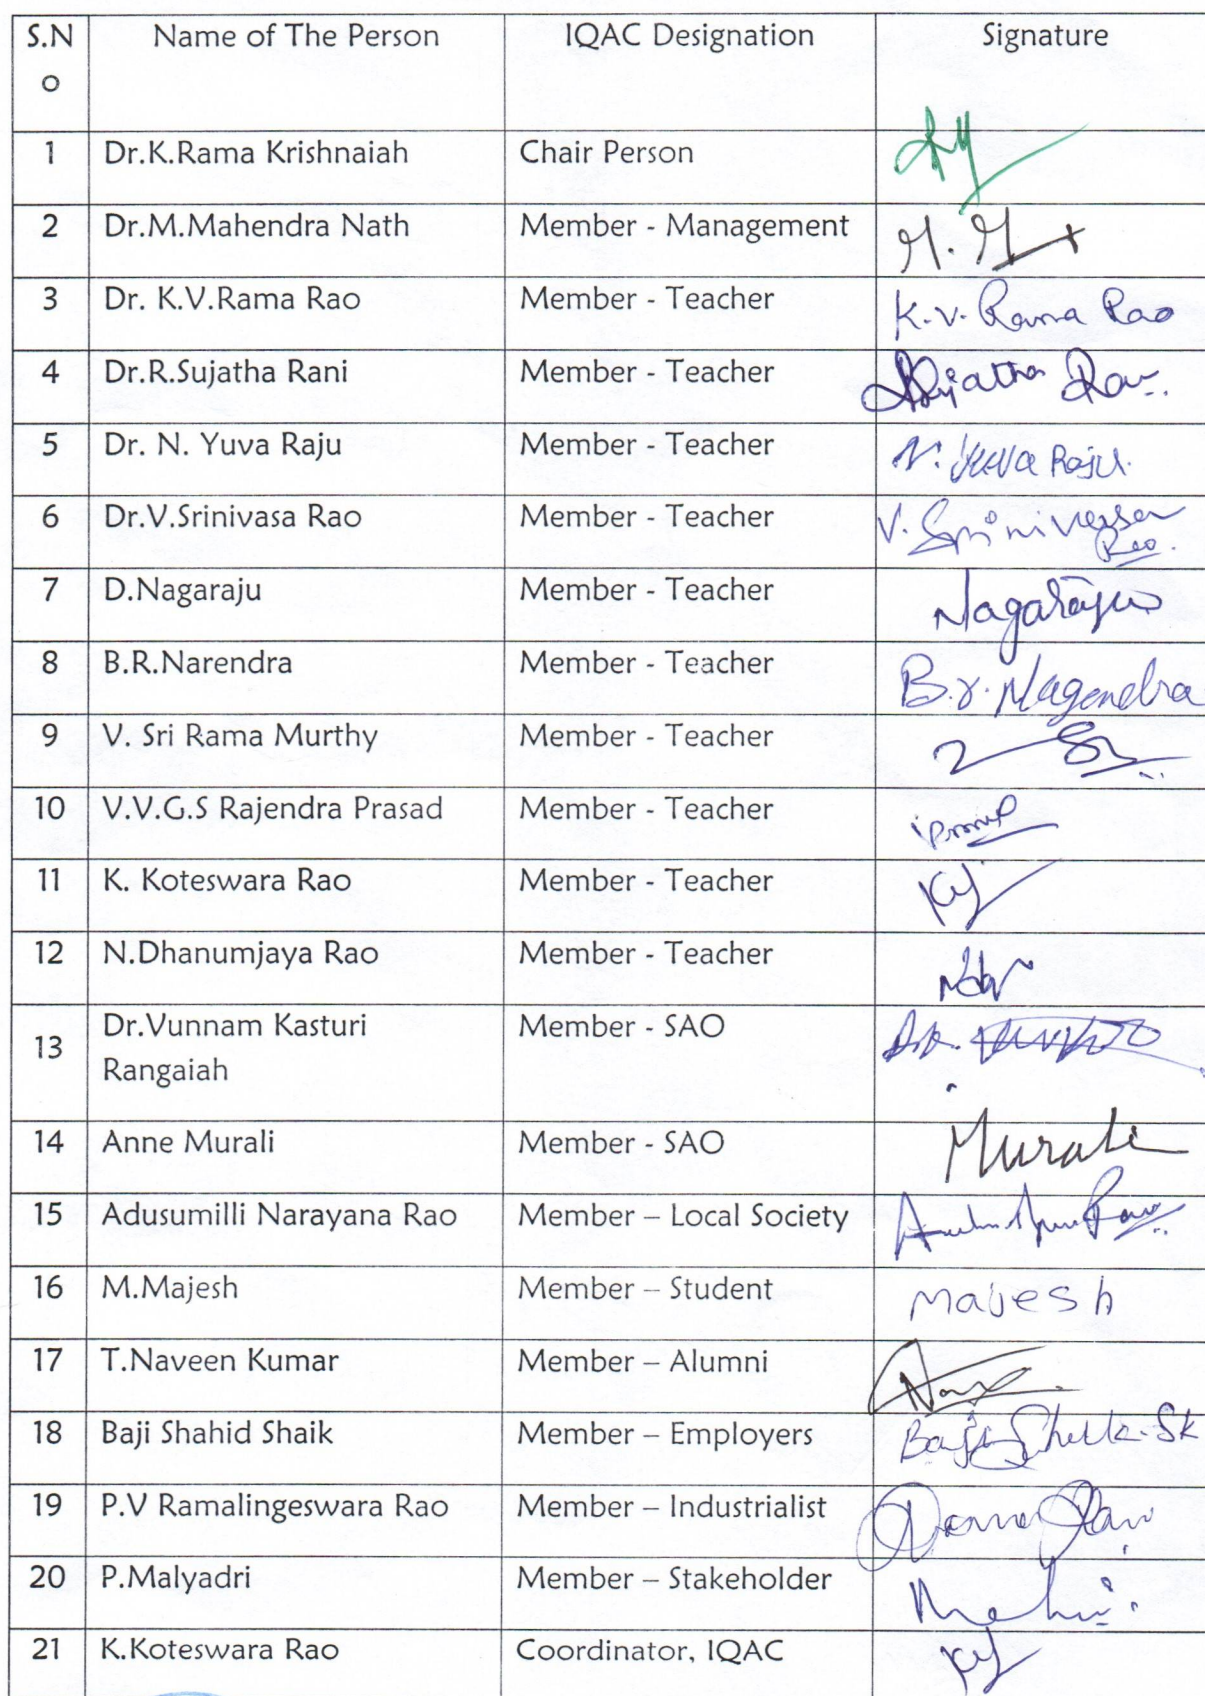 S.N Name of The Person IQAC Designation Signature
o
1 Dr.K.Rama Krishnaiah Chair Person
2 Dr.M.Mahendra Nath Member - Management
3 Dr. K.V.Rama Rao Member - Teacher K.V. Rama Rao
4 Dr.R.Sujatha Rani Member - Teacher Sujatha
5 Dr. N. Yuva Raju Member - Teacher N. Yuva Raju.
6 Dr.V.Srinivasa Rao Member - Teacher V. Srinivasa
Rao.
7 D.Nagaraju Member - Teacher Nagaraju
8 B.R.Narendra Member - Teacher B.r. Nagendra
9 V. Sri Rama Murthy Member - Teacher
10 V.V.G.S Rajendra Prasad Member - Teacher
11 K. Koteswara Rao Member - Teacher
12 N.Dhanumjaya Rao Member - Teacher
13 Dr.Vunnam Kasturi Member - SAO
Rangaiah
14 Anne Murali Member - SAO Murali
15 Adusumilli Narayana Rao Member – Local Society
16 M.Majesh Member – Student Majesh
17 T.Naveen Kumar Member – Alumni
18 Baji Shahid Shaik Member – Employers
19 P.V Ramalingeswara Rao Member – Industrialist
20 P.Malyadri Member – Stakeholder
21 K.Koteswara Rao Coordinator, IQAC